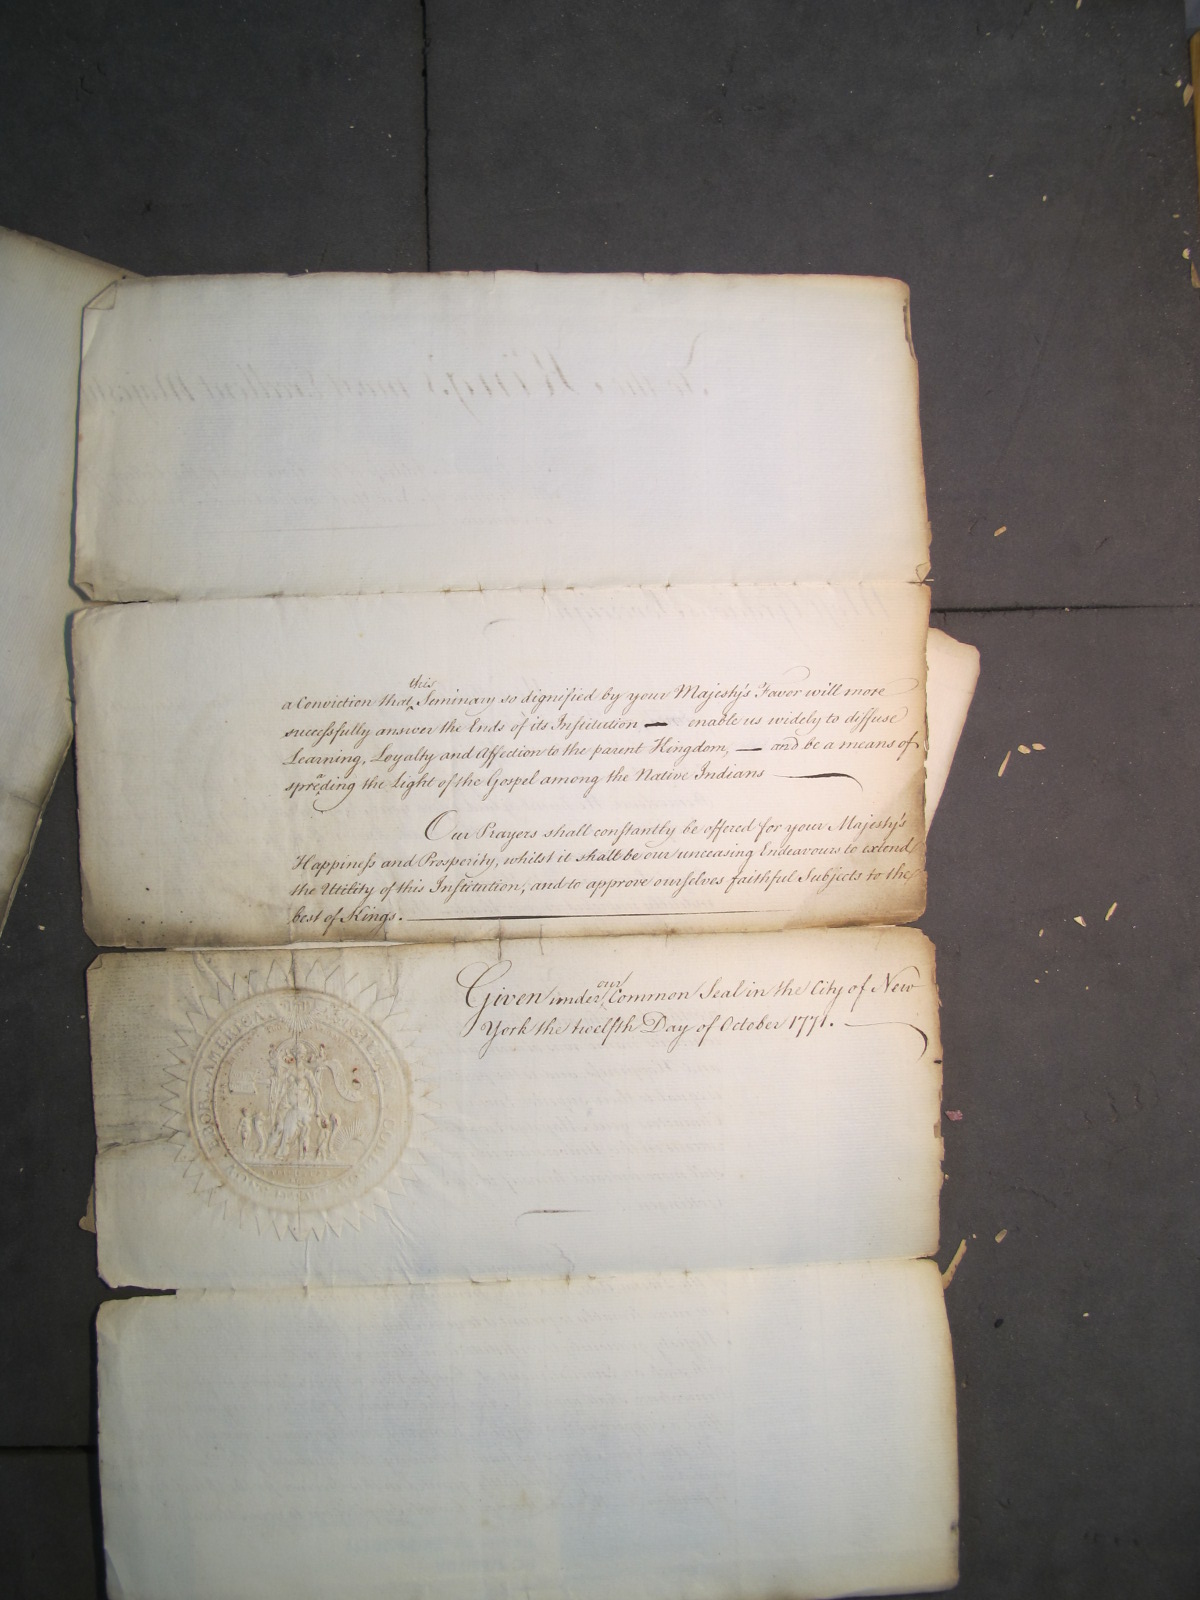 this
a Conviction that ‸ Seminary so dignified by your Majesty's Favor will more
successfully answer the Ends of its Institution — enable us widely to diffuse
Learning, Loyalty and Affection to the parent Kingdom, — and be a means of
spreading the Light of the Gospel among the Native Indians —
Our Prayers shall constantly be offered for your Majesty's
Happiness and Prosperity, whilst it shall be our unceasing Endeavours to extend
the Utility of this Institution, and to approve ourselves faithful Subjects to the
best of Kings. —
our
Given under ‸ Common Seal in the City of New
York the twelfth Day of October 1771. —